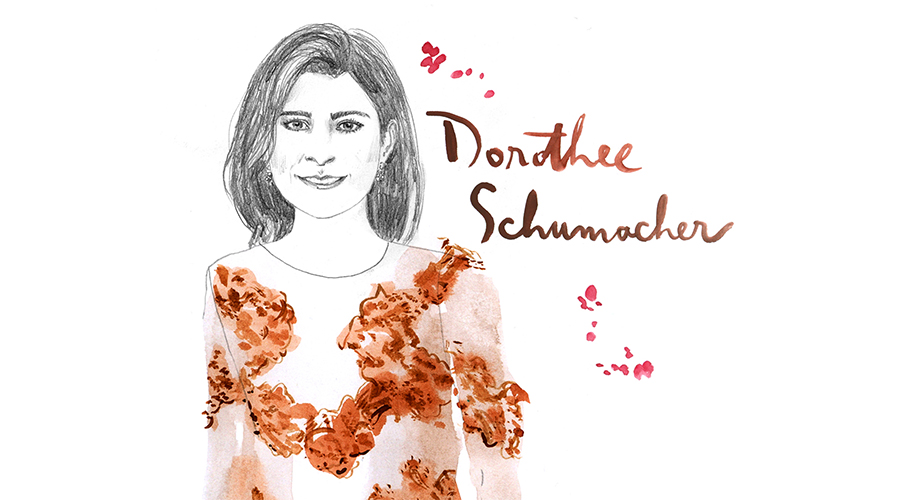 Dorothee
Schumacher